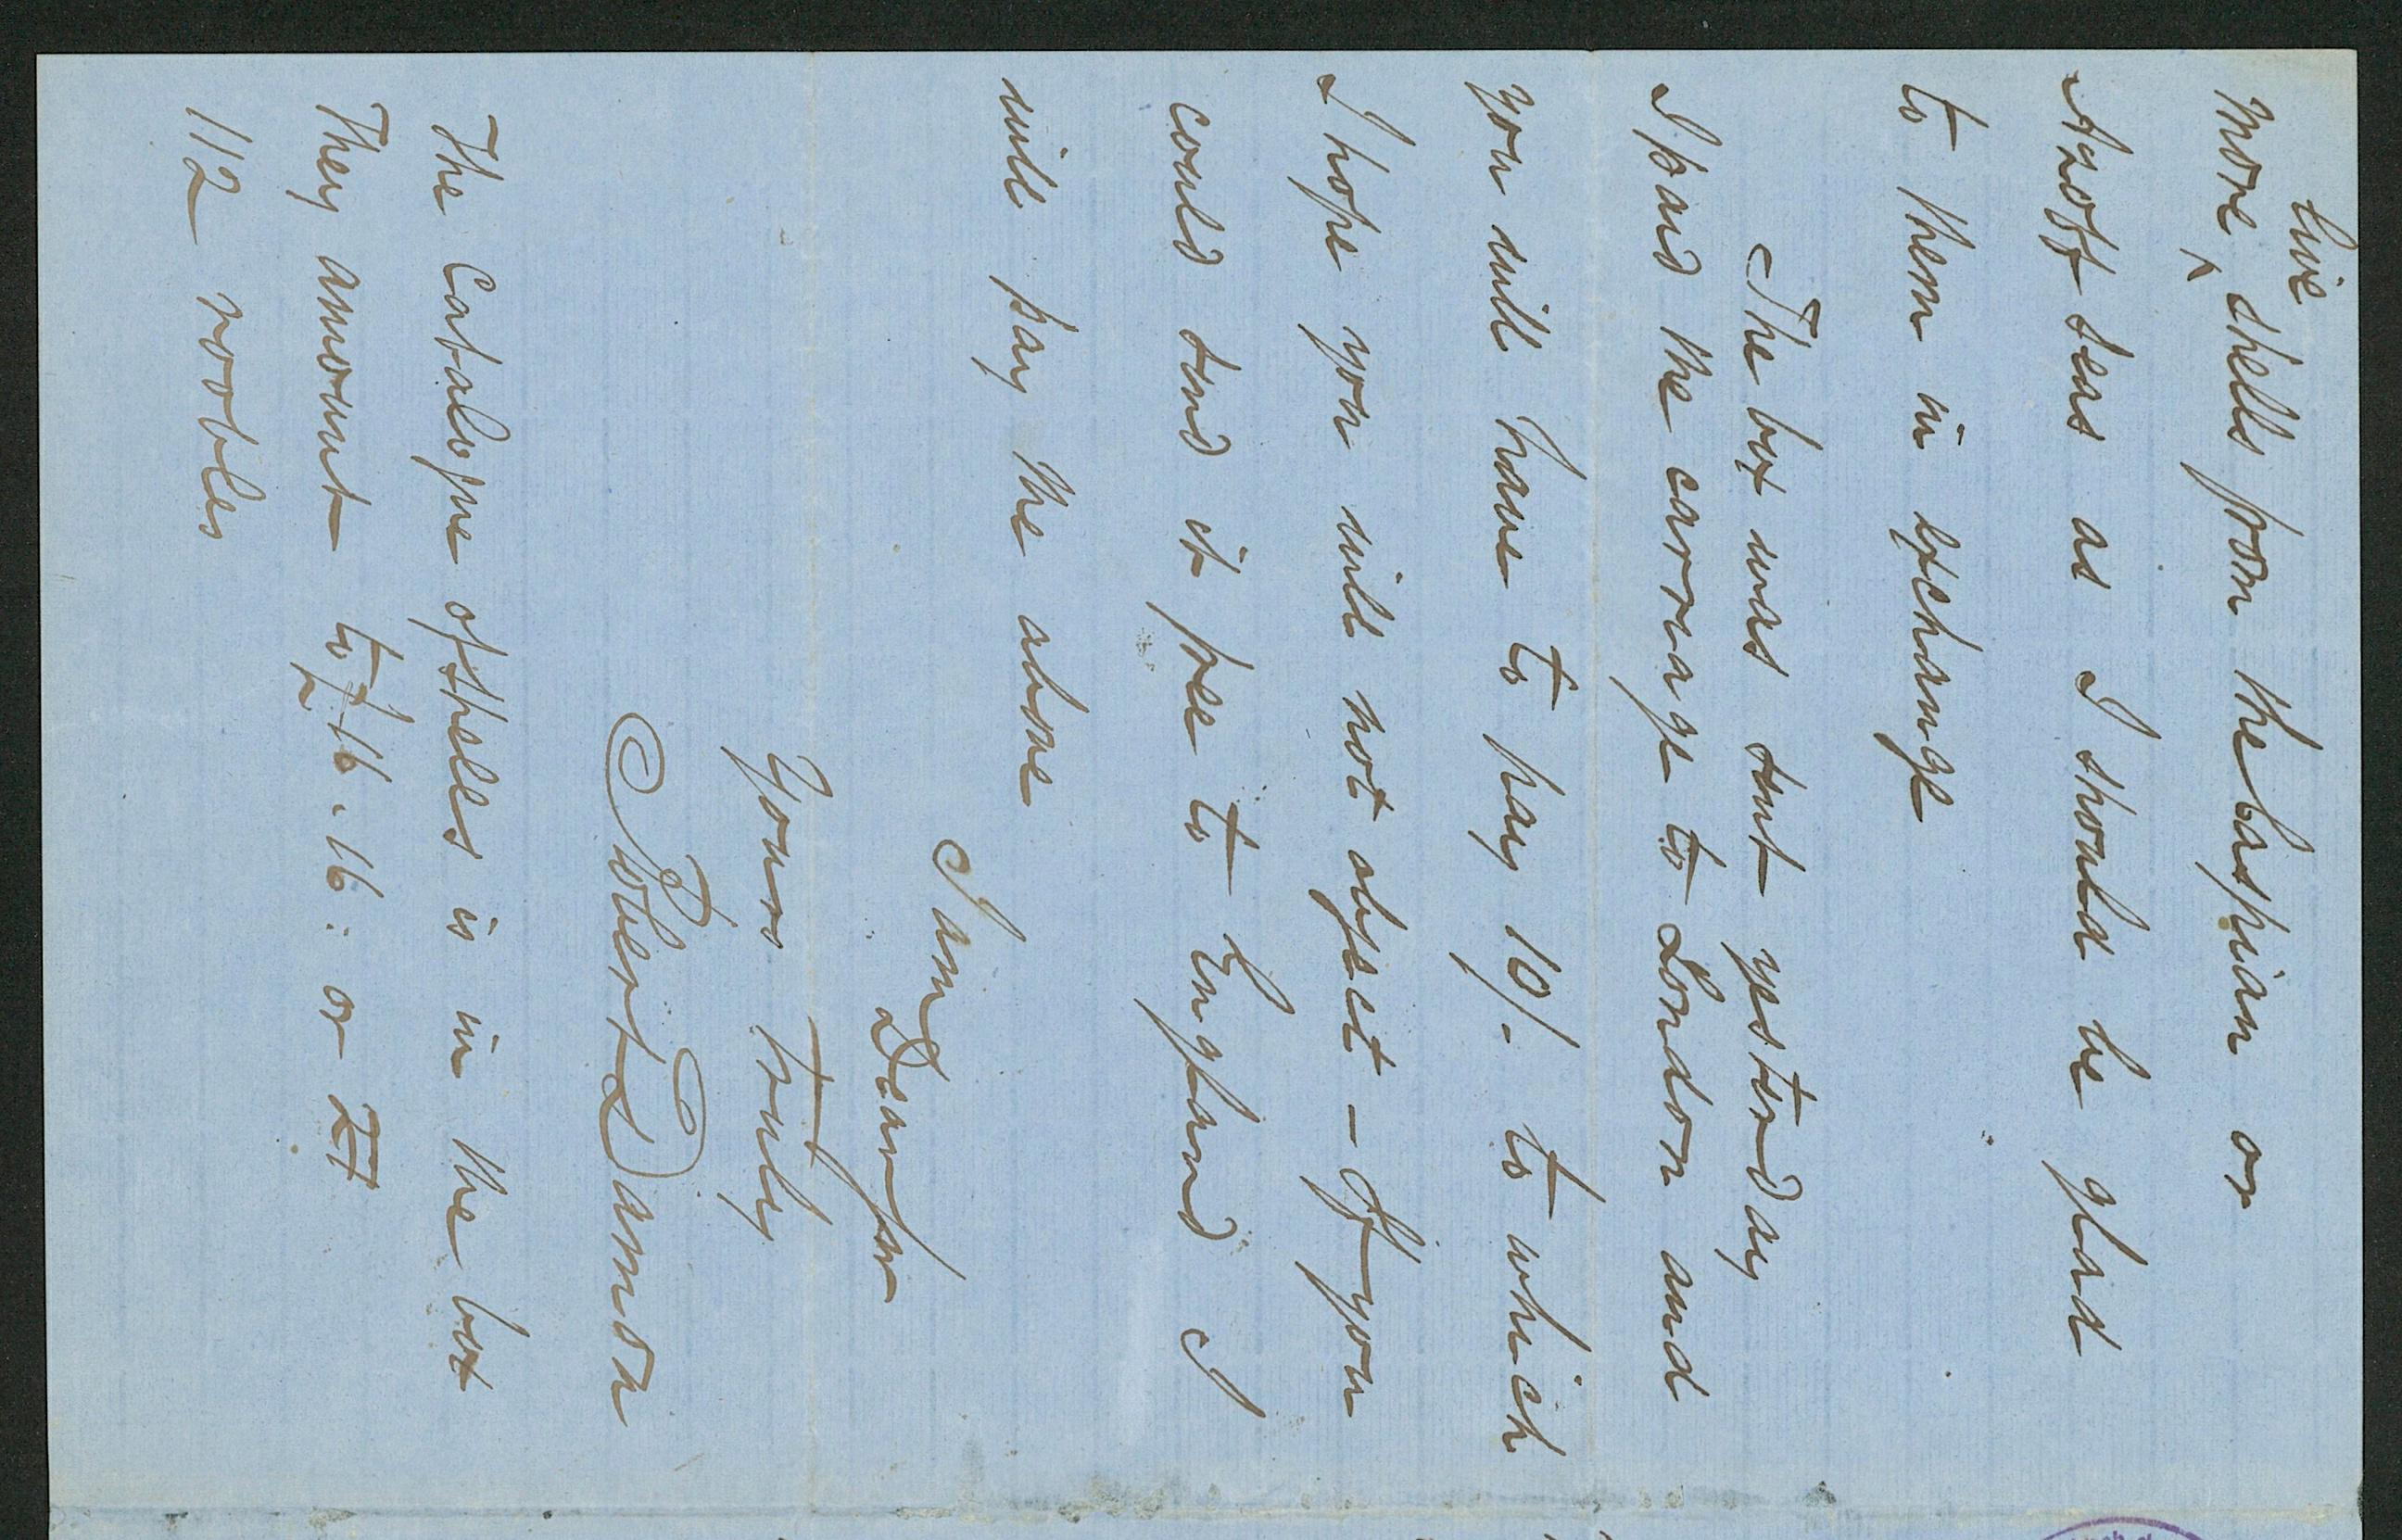 live
More ^ shells from the Caspian or
Azoff Seas as I should be glad
to them in exchange
The box was sent yesterday
I paid the carriage to London and
you will have to pay 10/- to which
I hope you will not object – If you
could send it free to England I
will pay the above
I am Dear Sir
Yours Truly
Robert Damon
The Catalogue of shells is in the box
They amount to £16.16: or
112 roobles